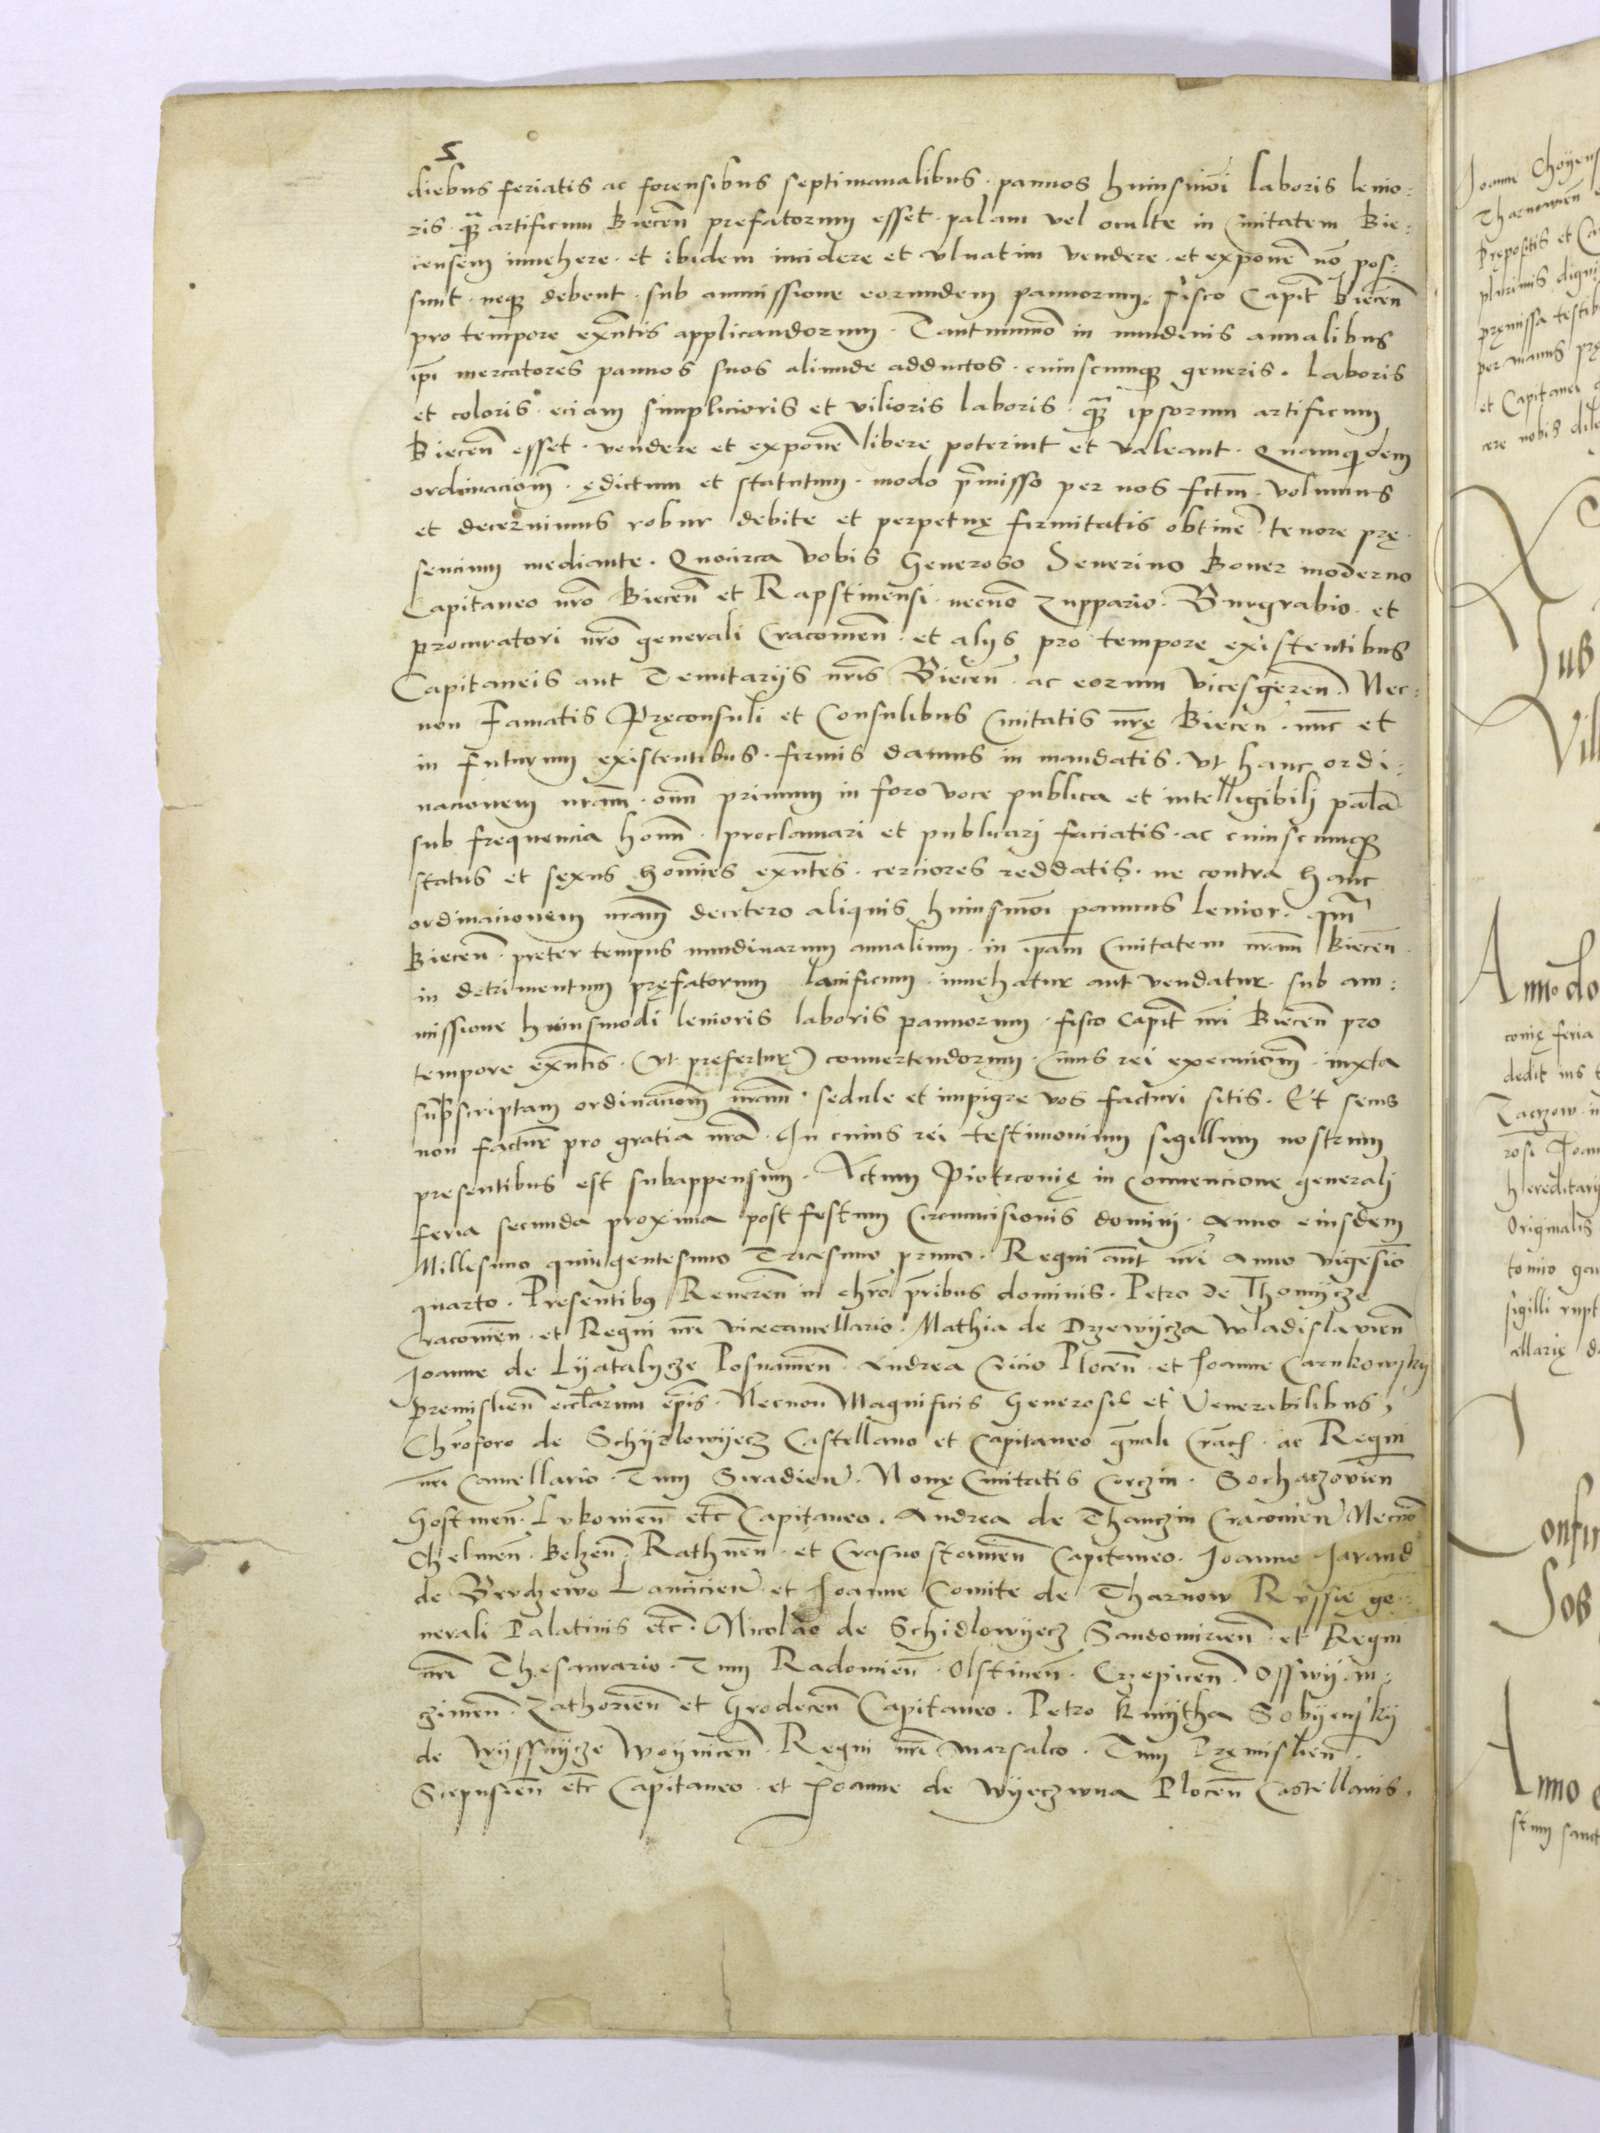 5
diebus feriatis ac forensibus septimanalibus · pannos huiusmōi laboris lenio:
ris · quā artificum Biecēn prefatorum esset · palam vel oculte in Ciuitatem Bie:
censem inuehere · et ibidem incidere et vlnatim vendere · et exponē nō pos:
sunt · neque debent · sub ammissione eorundem pannorum · fisco Capit̄ Biecēn
pro tempore exn̄tis applicandorum · Tantummō in nundinis annalibus
ip̄i mercatores pannos suos aliunde adductos · cuiuscumque generis · laboris
et coloris · eciam simplicioris et vilioris laboris · quā ipsorum artificum
Biecēn esset · vendere et exponē libere poterint et valeant · Quamquidem
ordinaciōm · ędictum et statutum · modo p̄misso per nos fctm̄ · volumus
et decernimus robur debite et perpetuę firmitatis obtinē · tenore prę
sencium mediante · Quocirca vobis Generoso Seuerino Boner moderno
Capitaneo nr̄o Biecēn et Rapstinensi · necnō zuppario · Burgrabio · et
procuratori nr̄o generali Cracouiēn · et alys pro tempore existentibus
Capitaneis aut Tenutarijs nr̄is Biecēn · ac eorum vicesgerēn · Nec:
non Famatis Pręconsuli et Consulibus Ciuitatis nr̄ę Biecēn · nūc et
in Futurum existentibus · firmis damus in mandatis · vt hanc ordi:
nacionem nr̄am · om̄ primum in foro voce publica et intelligibili palā
sub frequencia hom̄ · proclamari et publicari faciatis · ac cuiuscumque
status et sexus homīes exn̄tes · cerciores reddatis · ne contra hanc
ordinacionem nr̄am decetero aliquis huiusmōi pannus lenior ·
Biecēn · preter tempus nundinarum annalium · in ip̄am Ciuitatem nr̄am Biecēn
in detrimentum pręfatorum lanificum · inuehatur aut vendatur · sub am:
missione huiusmodi lenioris laboris pannorum · fisco Capit̄ nr̄i Biecēn pro
tempore exn̄tis · (vt prefertur) conuertendorum · Cuius rei execuciōm · iuxta
suprascriptam ordinaciōm nr̄am · sedule et impigre vos facturi sitis · Et secus
non factur̄ pro gratia nr̄a · In cuius rei testimonium sigillum nostrum
presentibus est subappensum · Actum Piotrcouię in Conuencione generali
feria secunda proxima post festum Circumcisionis domini · anno eiusdem
Millesimo quingentesimo Tricesimo primo · Regni aūt nr̄i anno vigesiō
quarto · Presentibus Reuerēn in chr̄o pr̄ibus dominis · Petro de Thomijcze
Cracouiēn · et Regni nr̄i vicecancellario · Mathia de Drzewijcza Wladislauiēn
Joanne de Lijatalijcze Posnaniēn · Andrea Cricio Plocēn · et Joanne Carnkowskij
Premisliēn eccl̄arum ep̄is · Necnon Magnificis Generosis et Venerabilibus,
Chr̄oforo de Schijdlowijecz Castellano et Capitaneo gn̄ali Crac̄ · ac Regni
nr̄i Cancellario · Tum Siradien̄ · Nouę Ciuitatis Corczin · Sochaczouiēn
Gostinēn · Lukouiēn etc̄ Capitaneo · Andrea de Thanczin Cracouiēn Necnō
Chelmēn · Belzēn · Rathnēn · et Crasnostauiēn Capitaneo · Joanne Jarand
de Brudzewo Lanciciēn et Joanne Comite de Tharnow Russie ge·
nerali Palatinis etc̄ · Nicolao de Schidlowijecz Sandomiriēn · et Regni
nr̄i Thesaurario · Tum Radomiēn · Olstinēn · Crzepicēn · Osswijan:
czimēn · Zathoriēn et Grodecēn Capitaneo · Petro Kmijtha Sobijenskij
de Wijssnijcze Woijnicēn · Regni nr̄i marsalco · Tum Pręmisliēn ·
Scepusiēn etc̄ Capitaneo · et Joanne de Wijeczwna Plocēn Castellanis ·
Joanne Choyens
Tharnouien̄
Prępositis et Ca
plurimis digni
pręmissa testib
per manus prę
et Capitanei
cere nobis dile
Sub
Vill
Anno do
couię feria
dedit ius
Taczow
rosi Joan
hereditarij
Originalis
tonio gen
sigilli rupt
ellarię d
Confir
Sob
Anno
stum sanct